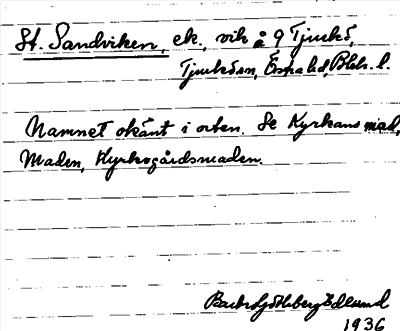 St. Sandviken, ek., vik å 9 Tjurkö,
Tjurkö sn, Östra hd, Blek. l.
Namnet okänt i orten. Se Kyrkans mad,
Maden, Kyrkogårdsmaden.
Edlund
1936